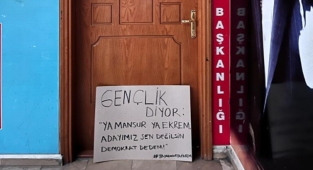 GENÇLİK
DİYOR:
"YA MANSUR YA EKREM,
ADAYIMIZ SEN DEĞİLSİN
DEMOKRAT DEDEM!"
BAŞKANLIĞI
BAŞKANLIĞI